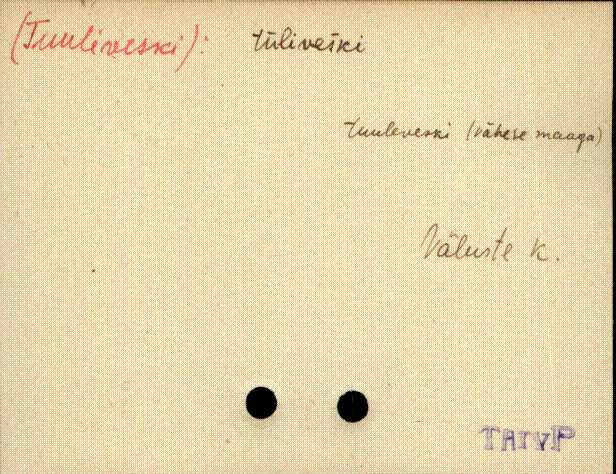 (Tuuliveski): tūliveśki
tuuleveski (vähese maaga)
Väluste k.
TARVP